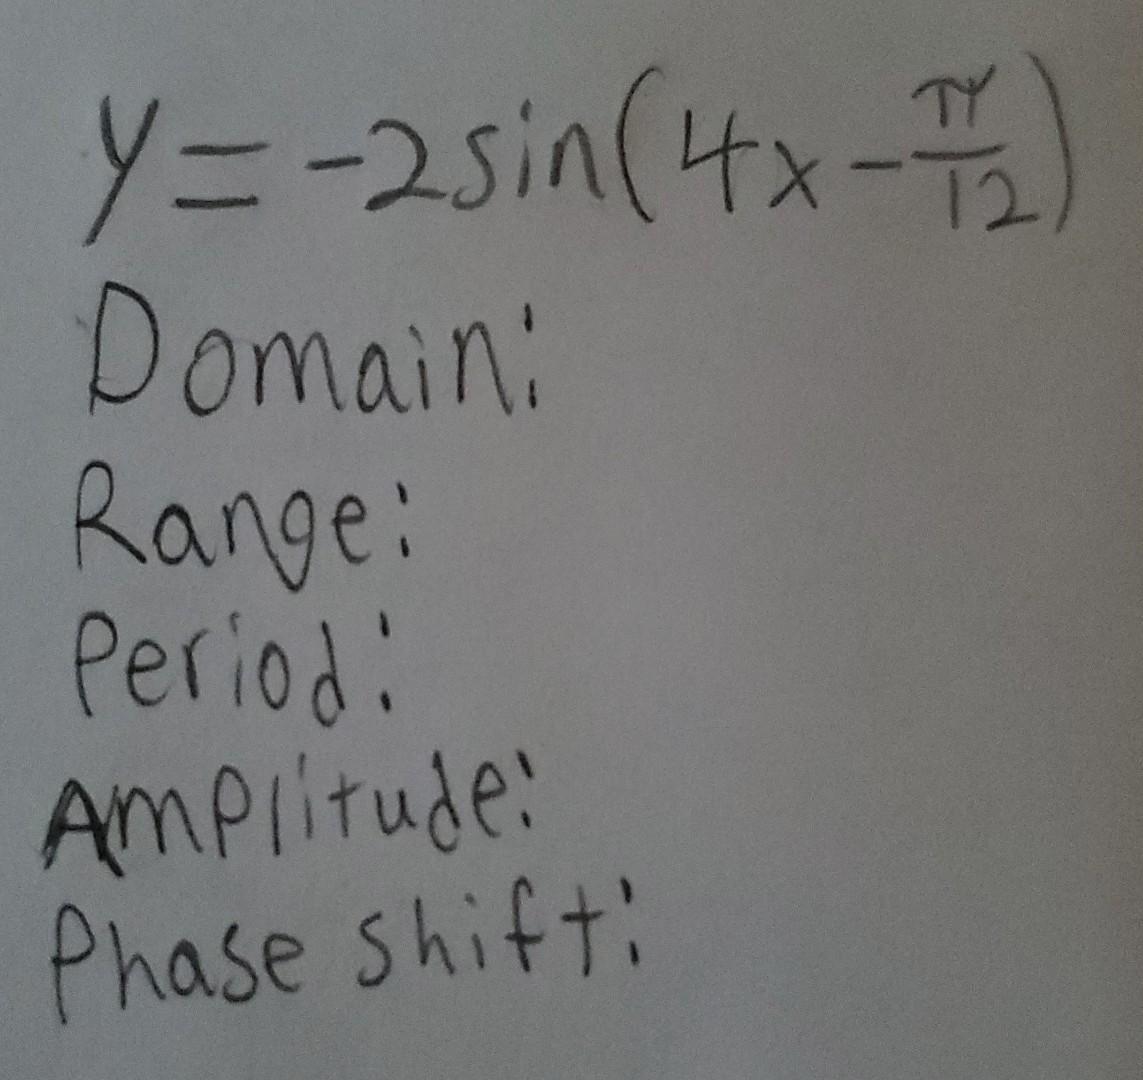 y = -2sin(4x - π/12)
Domain:
Range:
Period:
Amplitude:
Phase shift: